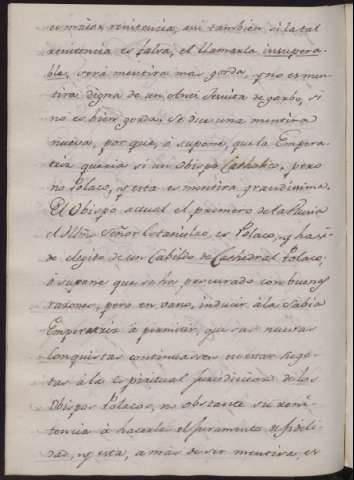 es maior renitencia, asi tambien si la tal
renitencia es falsa, el llamarla insupera-
ble, será mentira mas gorda, y no es men-
tira digna de un otro Jesuita de garbo, si
no es bien gorda. Se dice una mentira
nueva, por que, ò supone, que la Empera-
triz queria si un Obispo Catholico, pero
no Polaco, y esta es mentira grandisima.
El Obispo actual el primero de la Rusia
el Illmo Señor Estanislao es Polaco, y ha si-
do elegido de un Cabildo de Cathedral Polaco;
ò supone que se ha procurado con buenas
razones, pero en vano, inducir à la Sabia
Emperatriz à permitir, que sus nuevas
Conquistas continuasen en estar suge-
tas à la espiritual jurisdiccion de los
Obispos Polacos, no obstante su reni-
tencia à hacerle el juramento de fideli-
dad, y esta, a mas de ser mentira, es